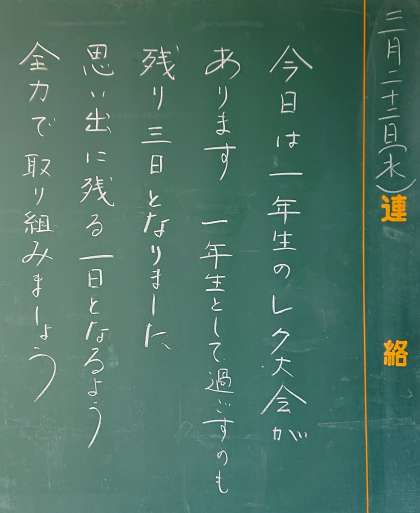 三月二十二日(水)
連絡
今日は一年生のレク大会が
あります 一年生として過ごすのも
残り三日となりました、
思い出に残る一日となるよう
全力で取り組みましょう